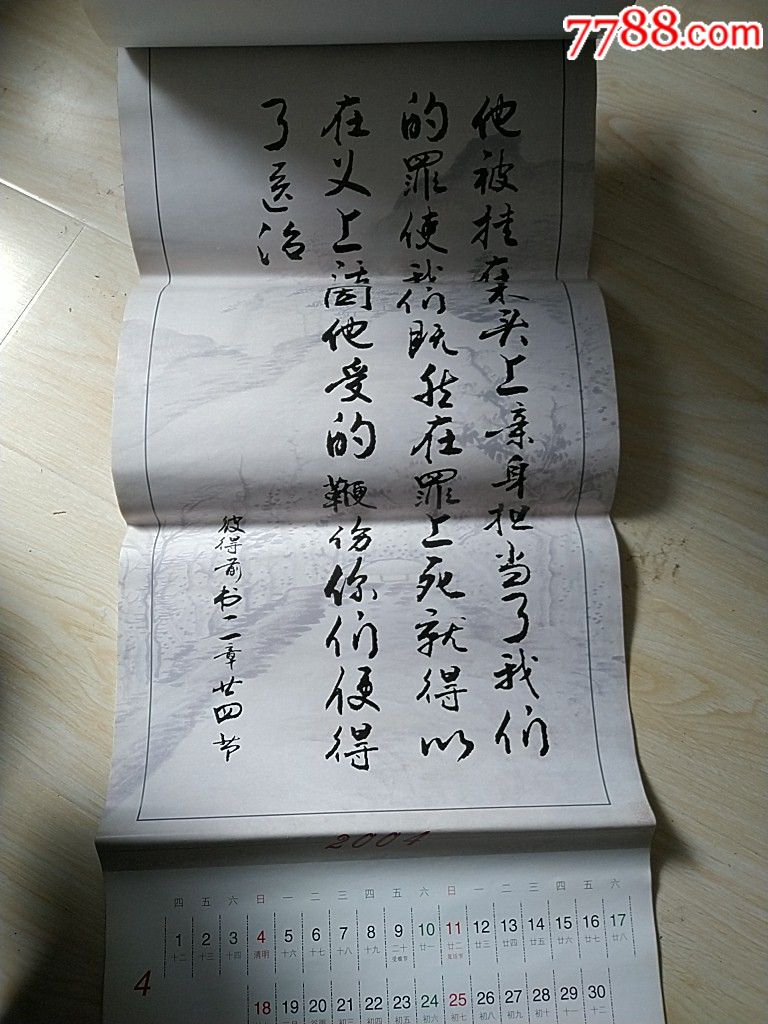 7788.com
他被挂在木头上亲身担当了我们
的罪使我们既然在罪上死就得以
在义上活他受的鞭伤你们便得
了医治
彼得前书二章廿四节
2004
四 五 六 日 一 二 三 四 五 六 日 一 二 三 四 五 六
1 2 3 4 5 6 7 8 9 10 11 12 13 14 15 16 17
十二 十三 十四 清明 十六 十七 十八 十九 二十 廿一 廿二 廿三 廿四 廿五 廿六 廿七 廿八
受难节 复活节
4
18 19 20 21 22 23 24 25 26 27 28 29 30
谷雨 初三 初四 初五 初六 初七 初八 初九 初十 十一 十二